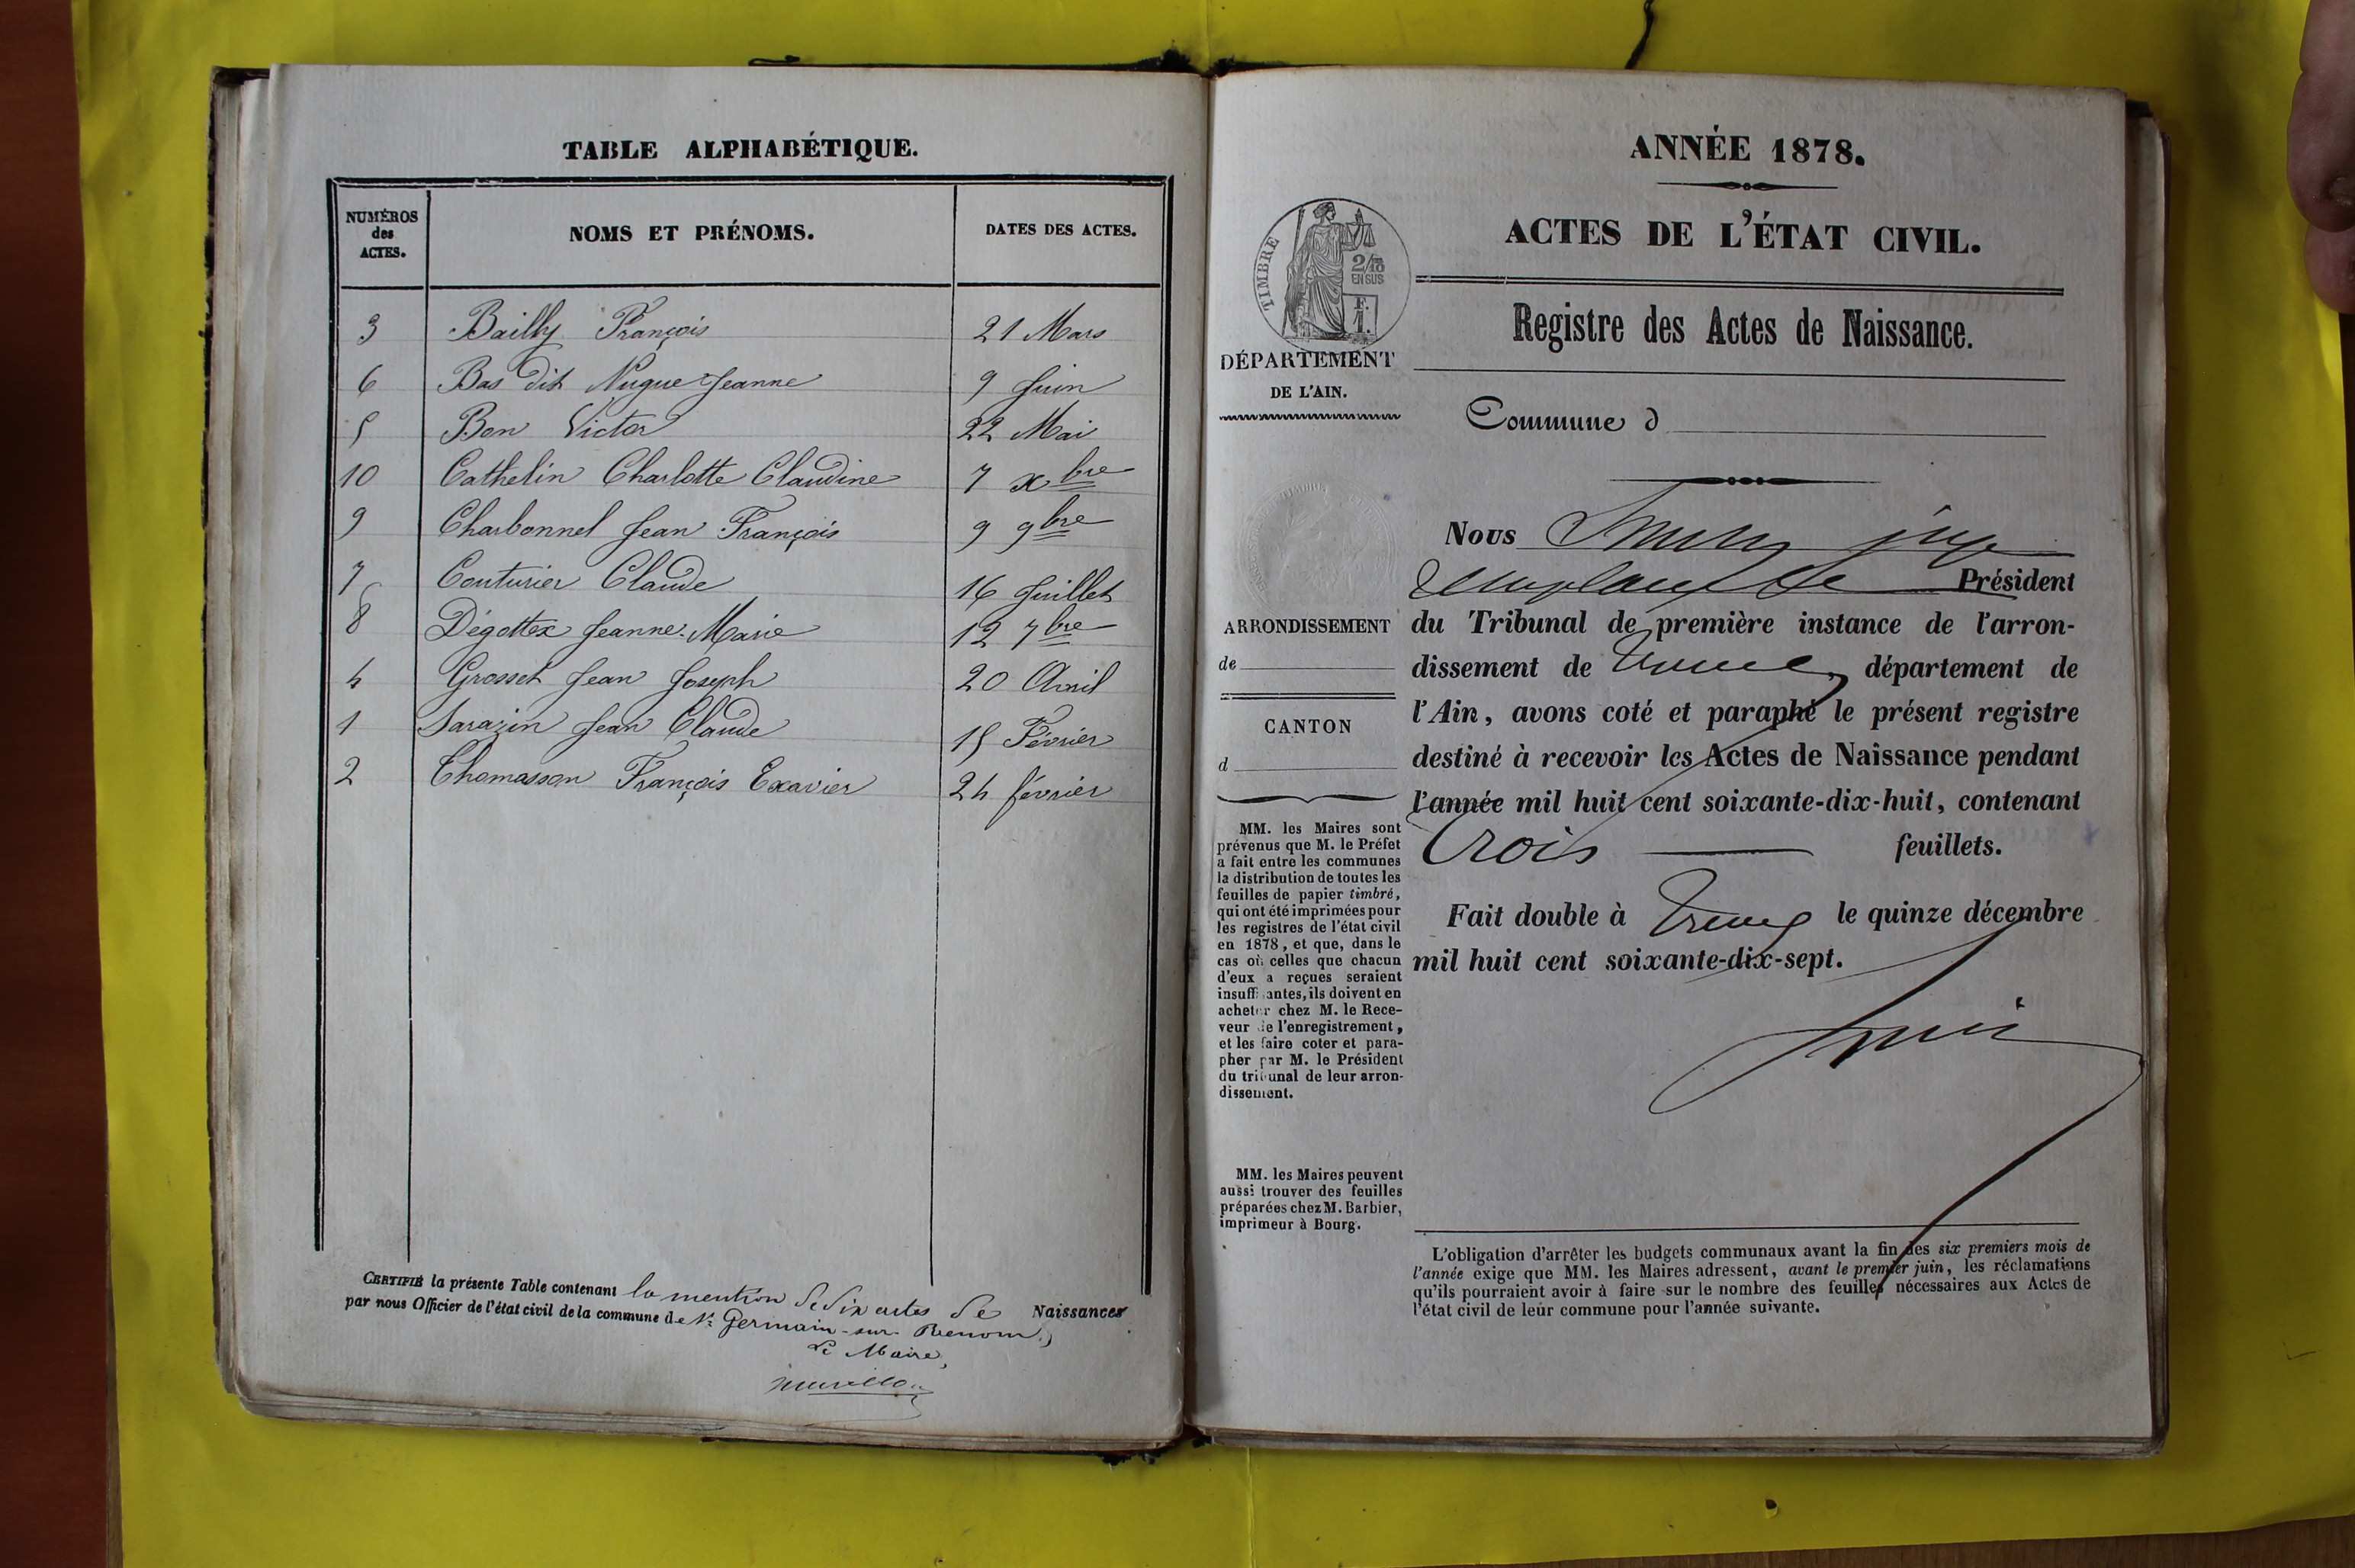 TABLE ALPHABÉTIQUE.
NUMÉROS des ACTES. NOMS ET PRÉNOMS. DATES DES ACTES.
3 Bailly François 21 Mars
6 Bas dit Nugue Jeanne 9 Juin
5 Bon Victor 22 Mai
10 Cathelin Charlotte Claudine 7 xbre
9 Charbonnel Jean François 9 9bre
7 Couturier Claude 16 Juillet
8 Dégottex Jeanne-Marie 12 7bre
4 Grosset Jean Joseph 20 Avril
1 Sarazin Jean Claude 15 Février
2 Thomasson François Exavier 24 février
CERTIFIÉ la présente Table contenant la mention de dix actes de Naissances
par nous Officier de l'état civil de la commune de St Germain-sur-Renom,
Le Maire,
ANNÉE 1878.
ACTES DE L'ÉTAT CIVIL.
TIMBRE
2/10
EN SUS
F.
1.
Registre des Actes de Naissance.
DÉPARTEMENT
DE L'AIN.
Commune d
ARRONDISSEMENT
de
CANTON
d
MM. les Maires sont
prévenus que M. le Préfet
a fait entre les communes
la distribution de toutes les
feuilles de papier timbré,
qui ont été imprimées pour
les registres de l'état civil
en 1878, et que, dans le
cas où celles que chacun
d'eux a reçues seraient
insuffisantes, ils doivent en
acheter chez M. le Rece-
veur de l'enregistrement,
et les faire coter et para-
pher par M. le Président
du tribunal de leur arron-
dissement.
MM. les Maires peuvent
aussi trouver des feuilles
préparées chez M. Barbier,
imprimeur à Bourg.
Nous juge
remplaçant le Président
du Tribunal de première instance de l'arron-
dissement de Trévoux, département de
l'Ain, avons coté et paraphé le présent registre
destiné à recevoir les Actes de Naissance pendant
l'année mil huit cent soixante-dix-huit, contenant
trois feuillets.
Fait double à Trévoux le quinze décembre
mil huit cent soixante-dix-sept.
L'obligation d'arrêter les budgets communaux avant la fin des six premiers mois de
l'année exige que MM. les Maires adressent, avant le premier juin, les réclamations
qu'ils pourraient avoir à faire sur le nombre des feuilles nécessaires aux Actes de
l'état civil de leur commune pour l'année suivante.